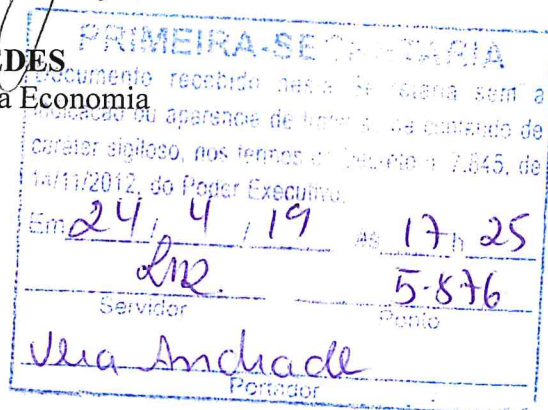 EDES
a Economia
PRIMEIRA-SECRETARIA
Documento recebido nesta Secretaria sem a
indicação ou aparência de de conteúdo de
caráter sigiloso, nos termos do Decreto n. 7.845, de
14/11/2012, do Poder Executivo.
Em 24 / 4 / 19 às 17 h 25
5.876
Servidor Ponto
Vera Andrade
Portador